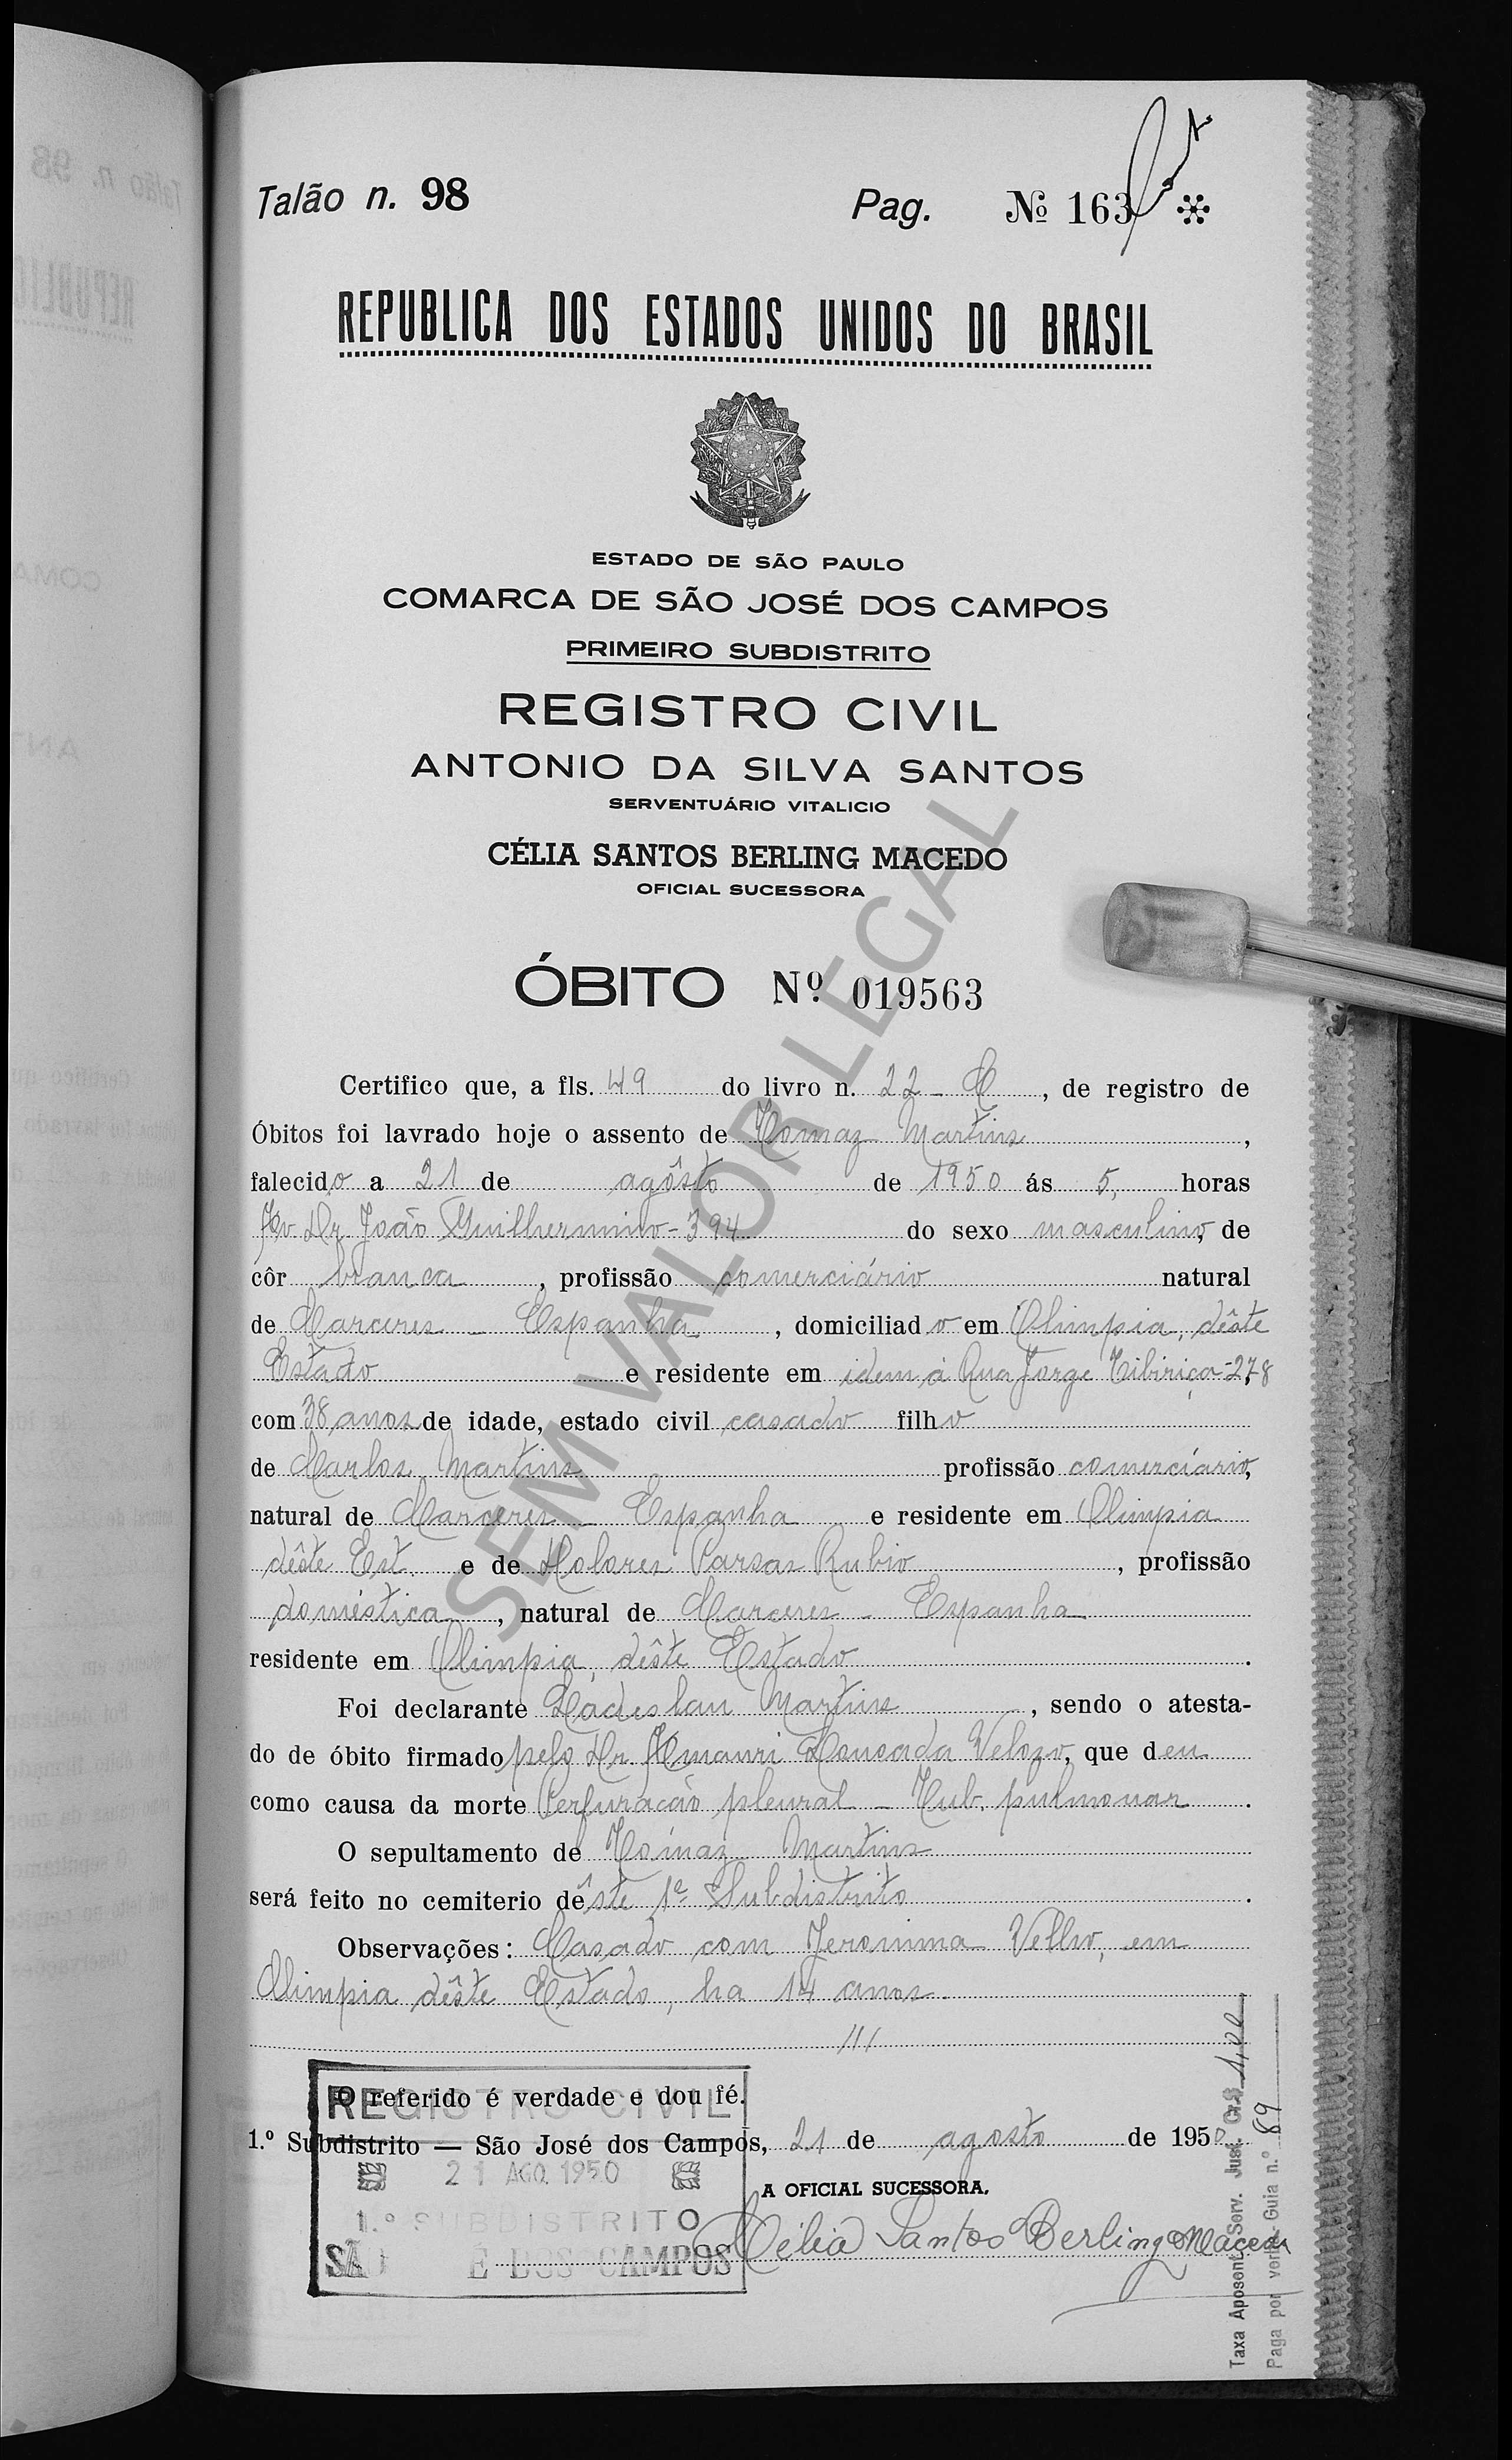 Talão n. 98 Pag. № 163
REPUBLICA DOS ESTADOS UNIDOS DO BRASIL
ESTADO DE SÃO PAULO
COMARCA DE SÃO JOSÉ DOS CAMPOS
PRIMEIRO SUBDISTRITO
REGISTRO CIVIL
ANTONIO DA SILVA SANTOS
SERVENTUÁRIO VITALICIO
CÉLIA SANTOS BERLING MACEDO
OFICIAL SUCESSORA
ÓBITO Nº 019563
Certifico que, a fls. 49 do livro n. 22 - C, de registro de
Óbitos foi lavrado hoje o assento de Tomaz Martins,
falecido a 21 de agôsto de 1950 ás 5, horas
Av. Dr. João Guilhermino - 394 do sexo masculino, de
côr branca, profissão comerciário natural
de Carceres - Espanha, domiciliado em Olimpia, dêste
Estado e residente em idem á Rua Jorge Tibiriça - 278
com 38 anos de idade, estado civil casado filho
de Carlos Martins profissão comerciário,
natural de Carceres - Espanha e residente em Olimpia
dêste Est. e de Dolores Parsas Rubio, profissão
doméstica, natural de Carceres - Espanha
residente em Olimpia, dêste Estado.
Foi declarante Ladislau Martins, sendo o atesta-
do de óbito firmado pelo Dr. Amauri Louzada Velozo, que deu
como causa da morte Perfuração pleural - Tub. pulmonar.
O sepultamento de Tomaz Martins
será feito no cemiterio dêste 1º Subdistrito.
Observações: Casado com Jeronima Velho, em
Olimpia dêste Estado, ha 14 anos.
O referido é verdade e dou fé.
REGISTRO CIVIL
1.º Subdistrito — São José dos Campos, 21 de agosto de 1950
21 AGO. 1950
A OFICIAL SUCESSORA,
1.º SUBDISTRITO
Célia Santos Berling Macedo
SÃO E DOS CAMPOS
Taxa Aposent. Serv. Just. Cr.$ 1,00
Paga por verba. Guia n.º 89
SEM VALOR LEGAL